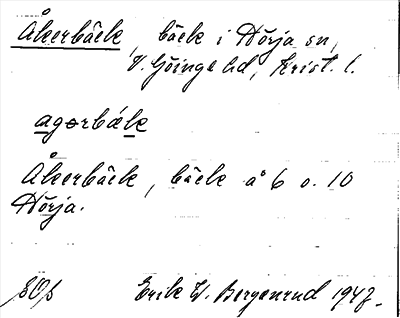 Åkerbäck, bäck i Nörja sn,
V. Göinge hd, Krist. l.
agərbæk
Åkerbäck, bäck å 6 o. 10
Nörja.
Erik W. Bergenrud 1947.